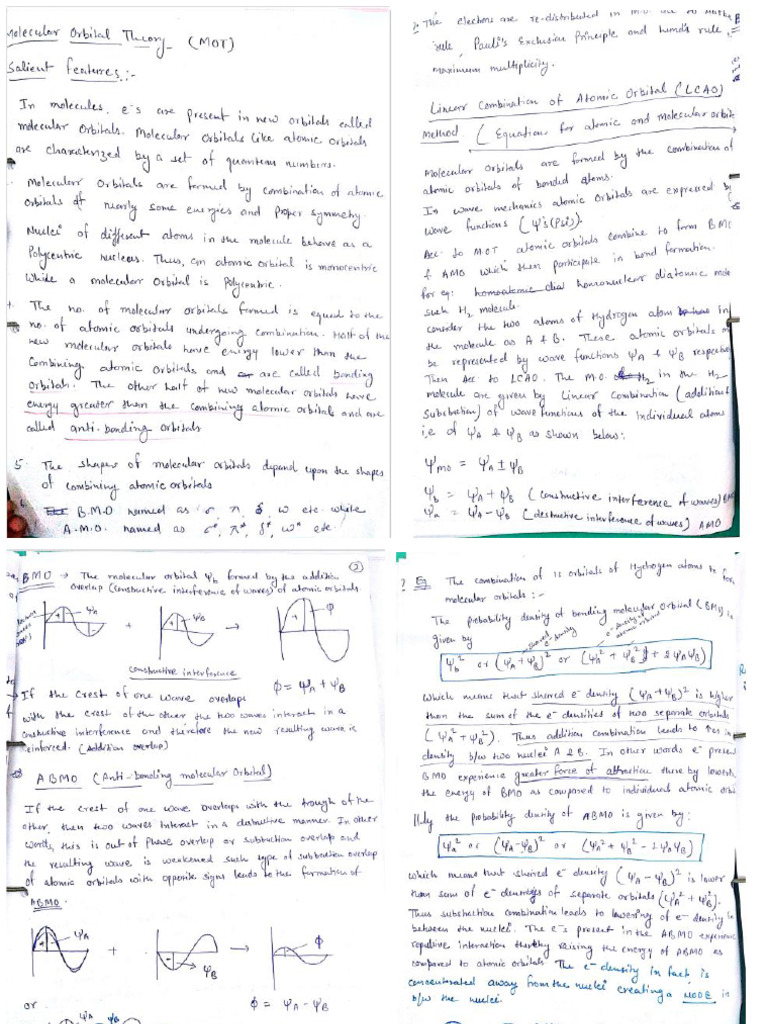 Molecular Orbital Theory (MOT)
Salient features:-
In molecules, e⁻s are present in new orbitals called
molecular Orbitals. Molecular Orbitals like atomic orbitals
are characterized by a set of quantum numbers.
Molecular Orbitals are formed by combination of atomic
Orbitals of nearly same energies and Proper symmetry.
Nuclei of different atoms in the molecule behave as a
Polycentric nucleus. Thus, an atomic orbital is monocentric
While a molecular Orbital is Polycentric.
The no. of molecular orbitals formed is equal to the
no. of atomic orbitals undergoing combination. Half of the
new molecular orbitals have energy lower than the
Combining atomic Orbitals and are called bonding
orbitals. The other half of new molecular orbitals have
energy greater than the combining atomic orbitals and are
called anti-bonding Orbitals
5. The shapes of molecular orbitals depend upon the shapes
of combining atomic orbitals
B.M.O named as σ, π, δ, ω etc while
A.M.O. named as σ*, π*, δ*, ω* etc.
The electrons are re-distributed in M.O. due to
rule, Pauli's Exclusion Principle and Hund's rule
maximum multiplicity.
Linear Combination of Atomic Orbital (LCAO)
Method. (Equations for atomic and molecular
Molecular Orbitals are formed by the combination of
atomic orbitals of bonded atoms.
In wave mechanics atomic Orbitals are expressed by
wave functions (ψ's(Psi)).
Acc. to MOT atomic orbitals combine to form BMO
& AMO which then participate in bond formation.
for eg: homoatomic dia homonuclear diatomic
such H₂ molecule.
consider the two atoms of Hydrogen atom in
the molecule as A & B. These atomic orbitals
be represented by wave functions ψA & ψB
Then Acc to LCAO. The M.O. in the H₂
molecule are given by Linear Combination (addition
Substraction) of wave functions of the individual atoms
i.e of ψA & ψB as shown below:
ψmo = ψA ± ψB
ψb = ψA + ψB (constructive interference of waves) BMO
ψa = ψA - ψB (destructive interference of waves) AMO
(2)
BMO → The molecular orbital ψb formed by the addition
overlap (constructive interference of waves) of atomic orbitals.
+ ψA - + + ψB → + ϕ
Constructive interference
ϕ = ψA + ψB
If the crest of one wave overlaps
with the crest of the other the two waves interact in a
constuctive interference and therefore the new resulting wave is
reinforced. (Addition overlap)
ABMO (Anti-bonding molecular Orbital)
If the crest of one wave overlaps with the trough of the
other, then two waves interact in a distuctive manner. In other
words, this is out of phase overlap or subtraction overlap and
the resulting wave is weakened such type of subtraction overlap
of atomic orbitals with opposite signs leads to the formation of
ABMO.
+ ψA + - ψB → + ϕ
or ϕ = ψA - ψB
ψA ψB
? Eg. The combination of 1s orbitals of Hydrogen atoms to form
molecular orbitals :-
The probability density of bonding molecular Orbital (BMO) is
given by shared e⁻density e⁻density of atomic orbital
ψb² or (ψA + ψB)² or (ψA² + ψB² + 2ψAψB)
Which means that shared e⁻ density (ψA + ψB)² is higher
than the sum of the e⁻ densities of two separate orbitals
(ψA² + ψB²). Thus addition combination leads to ↑es in
density b/w two nuclei A & B. In other words e⁻ present
BMO experience greater force of attraction there by lowering
the energy of BMO as compared to individual atomic
||ly the probability density of ABMO is given by:
ψa² or (ψA - ψB)² or (ψA² + ψB² - 2ψAψB)
Which means that shared e⁻ density (ψA - ψB)² is lower
than sum of e⁻ densities of separate orbitals (ψA² + ψB²).
Thus substraction combination leads to lowering of e⁻ density in
between the nuclei. The e⁻s present in the ABMO experience
repulsive interaction thereby raising the energy of ABMO as
compared to atomic orbitals. The e⁻ density in fact is
concentrated away from the nuclei creating a NODE in
b/w the nuclei.